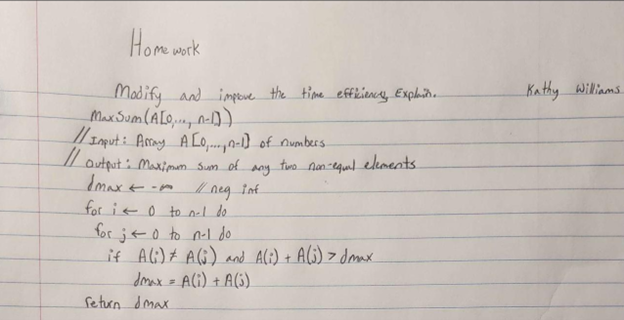 Homework
Modify and improve the time efficiency, Explain. Kathy Williams
MaxSum(A[0,..., n-1])
// Input: Array A[0,...,n-1] of numbers
// Output: Maximum sum of any two non-equal elements
dmax ← -∞ // neg inf
for i ← 0 to n-1 do
for j ← 0 to n-1 do
if A(i) ≠ A(j) and A(i) + A(j) > dmax
dmax = A(i) + A(j)
return dmax